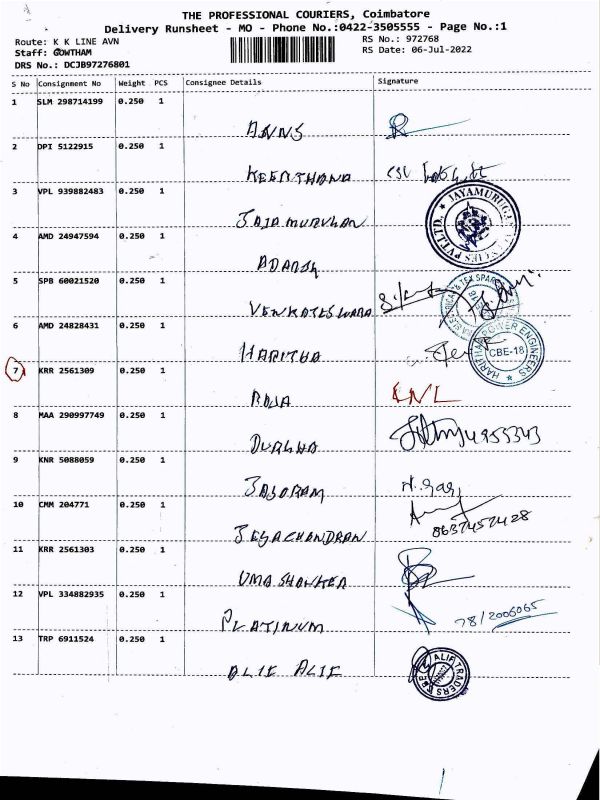 THE PROFESSIONAL COURIERS, Coimbatore
Delivery Runsheet - MO - Phone No.:0422-3505555 - Page No.:1
Route: K K LINE AVN
RS No.: 972768
Staff: GOWTHAM
RS Date: 06-Jul-2022
DRS No.: DCJB97276801
S No Consignment No Weight PCS Consignee Details Signature
1 SLM 298714199 0.250 1
ANNS
2 DPI 5122915 0.250 1
KEERTHANA
3 VPL 939882483 0.250 1
JAIA MURUHAN
JAYAMURUGAN
PVT.LTD.
4 AMD 24947594 0.250 1
ADARSH
5 SPB 60021520 0.250 1
VENKATESWARA
6 AMD 24828431 0.250 1
HARITHA
HARITHA POWER ENGINEERS
CBE-18
7 KRR 2561309 0.250 1
RAJA
ANL
8 MAA 290997749 0.250 1
DURGHA
9 KNR 5088059 0.250 1
JASORAM
10 CMM 204771 0.250 1
JEYACHANDRAN
8637457428
11 KRR 2561303 0.250 1
UMA SHANKER
12 VPL 334882935 0.250 1
PLATINUM
78/2006065
13 TRP 6911524 0.250 1
ALIF ALIF
ALIF TRADERS